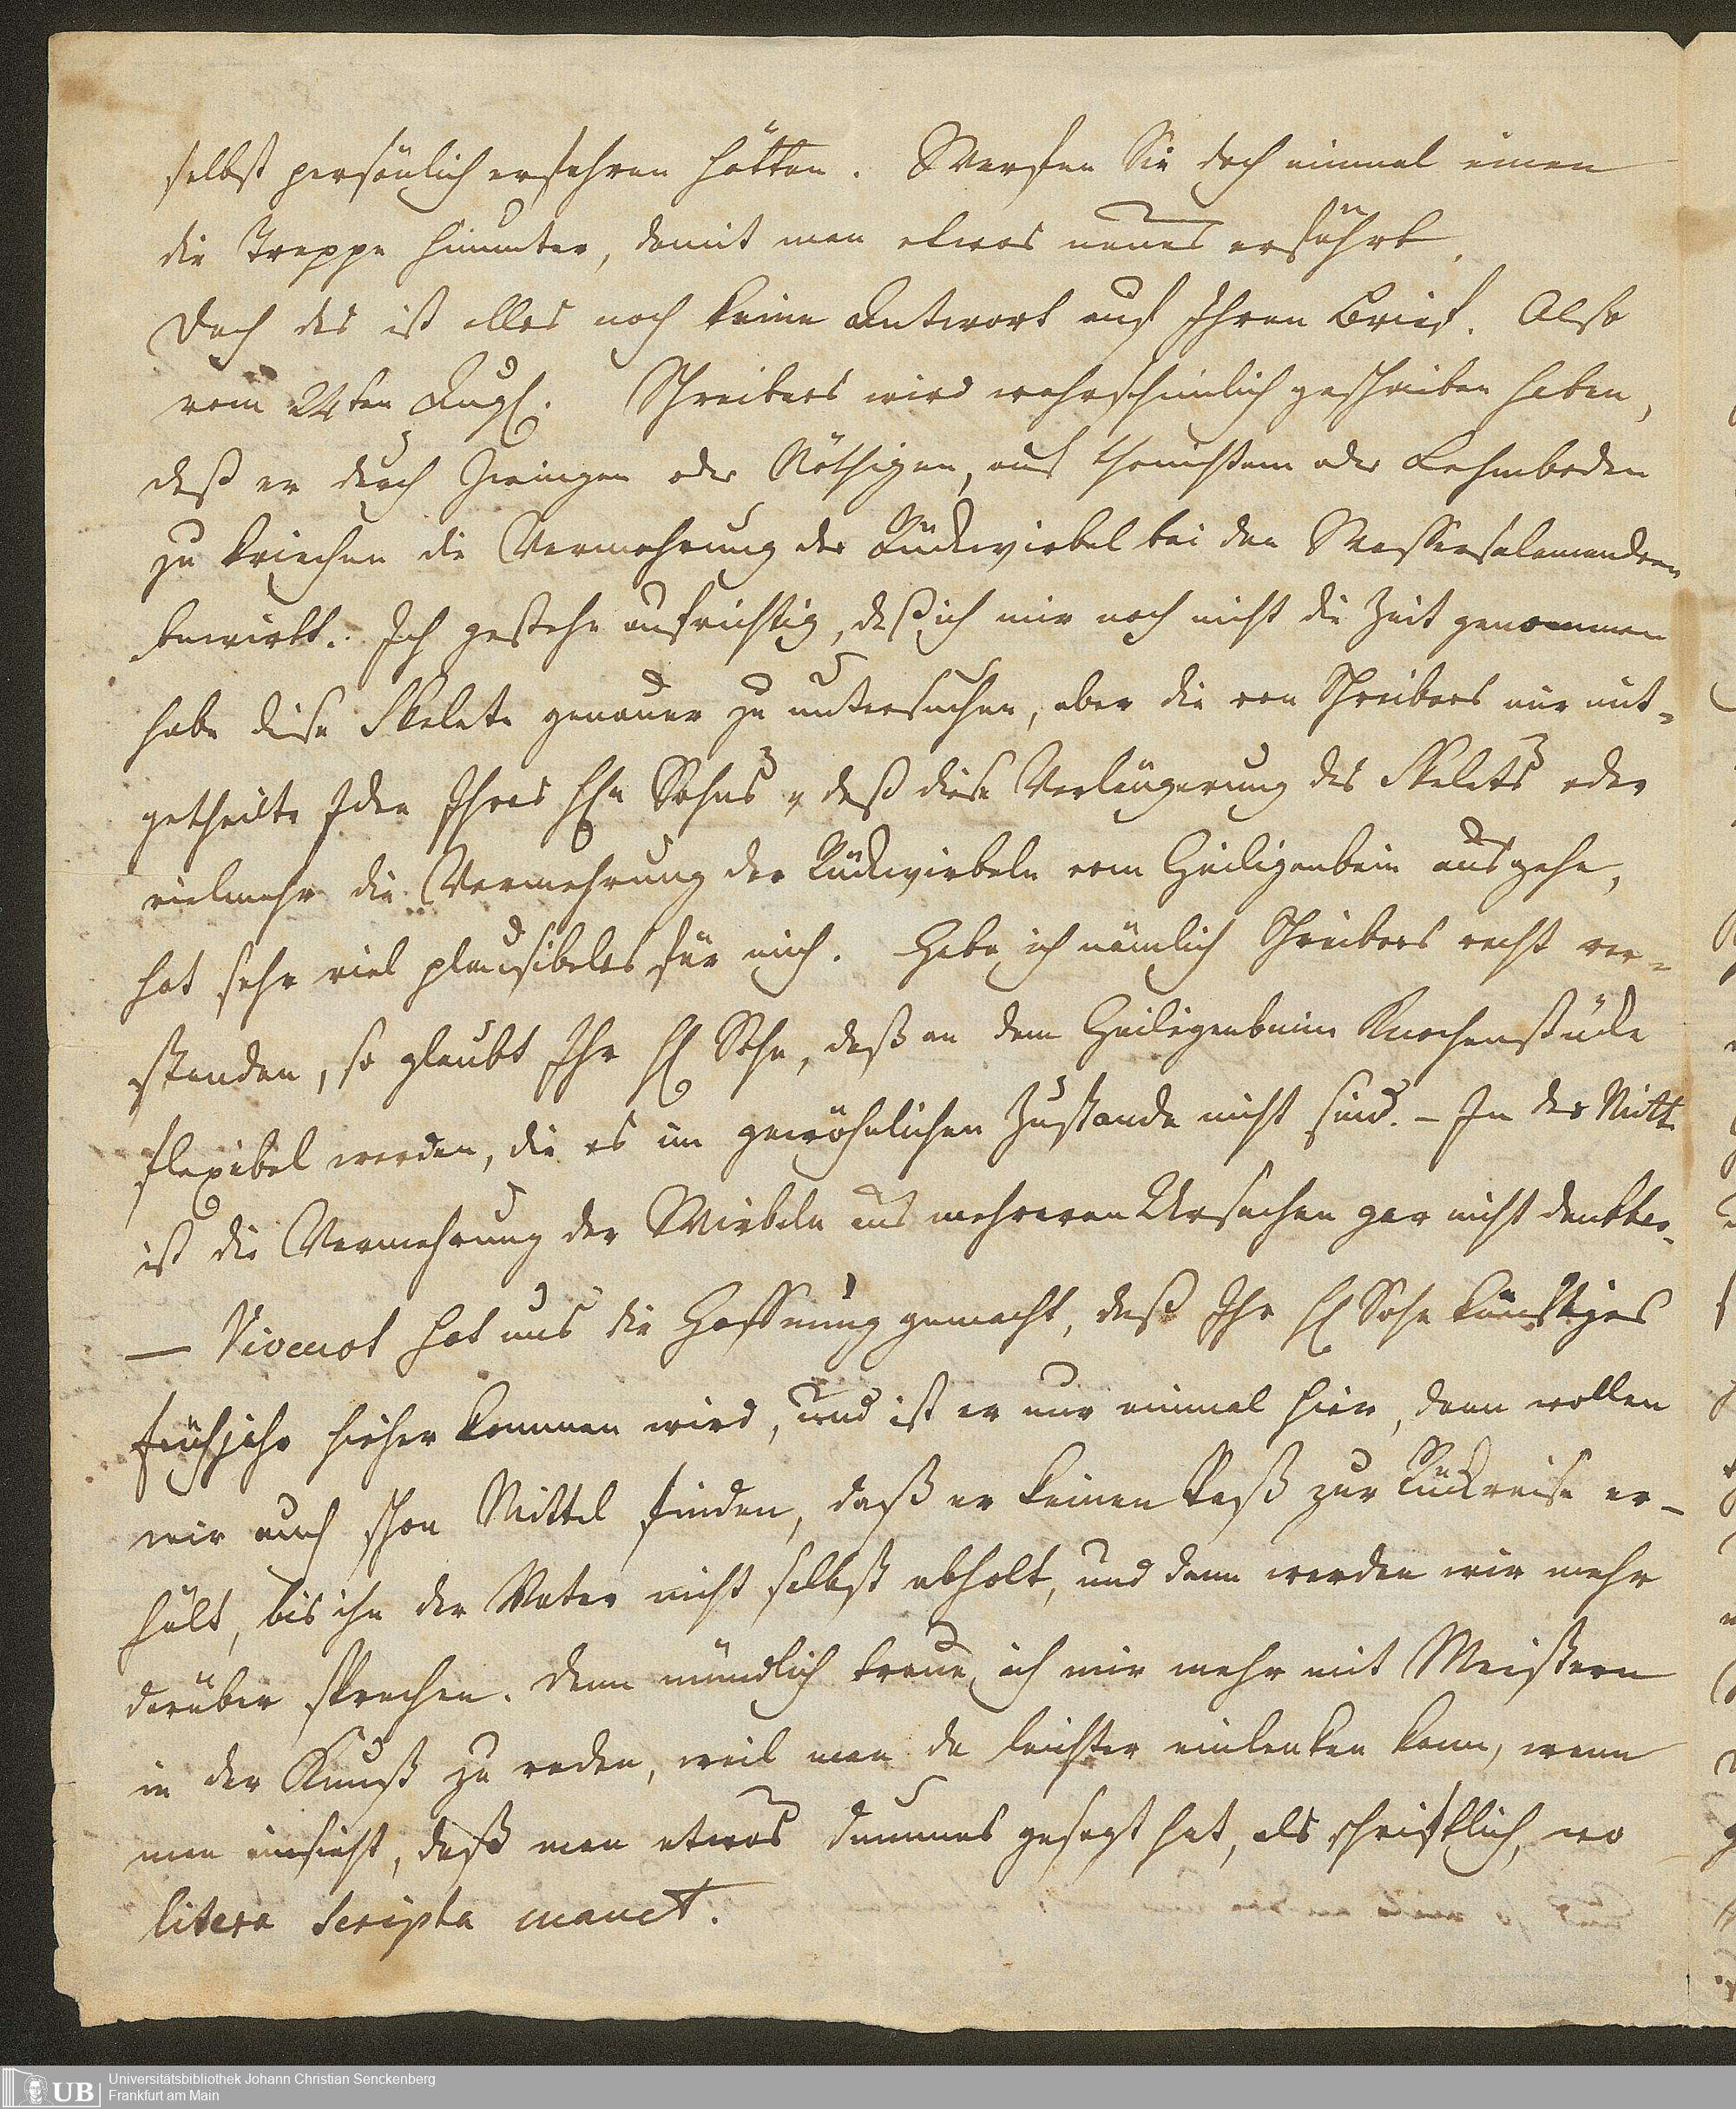 selbst persönlich erfahren hätten. Werfen Sie doch einmal einen
die Treppe hinunter, damit man etwas neues erfährt.
Doch das ist alles noch keine Antwort auf Ihren Brief. Also
vom 24ten Aug. Schreibers wird wahrscheinlich geschrieben haben,
daß er durch Zwingen oder Nöthigen, auf thonichtem oder Lehmboden
zu kriechen die Vermehrung der Rückwirbel bei den Wassersalamandern
bewirkt. Ich gestehe aufrichtig, daß ich mir noch nicht die Zeit genommen
habe diese Skelete genauer zu untersuchen, aber die von Schreibers mir mit-
getheilte Idee Ihres Hn Sohns, daß diese Verlängerung des Skelets oder
vielmehr die Vermehrung der Rückwirbeln vom Heiligenbein ausgehe,
hat sehr viel plausibeles für mich. Habe ich nämlich Schreibers recht ver-
standen, so glaubt Ihr H Sohn, daß an dem Heiligenbeine Knochenstücke
flexibel werden, die es im gewöhnlichen Zustande nicht sind. – In der Mitte
ist die Vermehrung der Wirbeln aus mehreren Ursachen gar nicht denkbar.
— Vivenot hat uns die Hoffnung gemacht, daß Ihr H Sohn künftiges
Frühjahr hieher kommen wird, und ist er nur einmal hier, dann wollen
wir auch schon Mittel finden, daß er keinen Paß zur Rückreise er-
hält, bis ihn der Vater nicht selbst abholt, und dann werden wir mehr
darüber sprechen. Denn mündlich traue ich mir mehr mit Meistern
in der Kunst zu reden, weil man da leichter einlenken kann, wenn
man einsieht, daß man etwas dummes gesagt hat, als schriftlich, wo
litera scripta manet.
UB Universitätsbibliothek Johann Christian Senckenberg
Frankfurt am Main